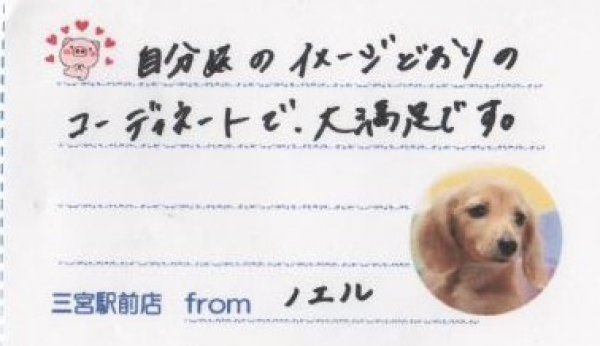 自分達のイメージどおりの
コーディネートで、大満足です。
三宮駅前店 from ノエル